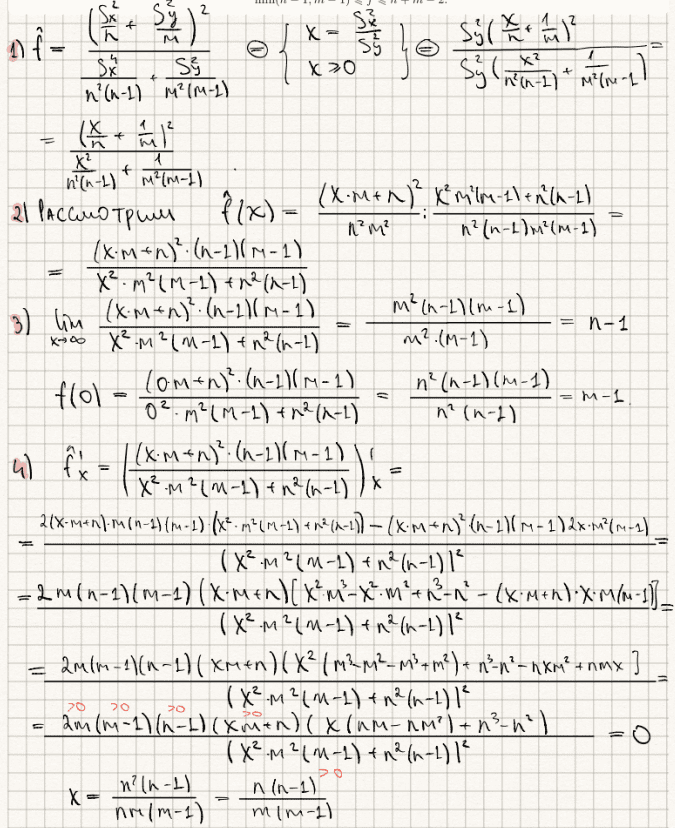 min(n − 1, m − 1) ⩽ f̂ ⩽ n + m − 2.
1) f̂ = (Sx²/n + Sy²/m)² / (Sx⁴/(n²(n-1)) + Sy⁴/(m²(m-1))) ⊜ { x = Sx²/Sy² ; x ⩾ 0 } ⊜ Sy²(x/n + 1/m)² / Sy²(x²/(n²(n-1)) + 1/(m²(m-1))) =
= (x/n + 1/m)² / (x²/(n²(n-1)) + 1/(m²(m-1))).
2) Рассмотрим f̂(x) = (x·m+n)²/(n²m²) : (x²m²(m-1)+n²(n-1))/(n²(n-1)m²(m-1)) =
= (x·m+n)²·(n-1)(m-1) / (x²·m²(m-1)+n²(n-1))
3) lim x→∞ (x·m+n)²·(n-1)(m-1) / (x²·m²(m-1)+n²(n-1)) = m²(n-1)(m-1) / (m²·(m-1)) = n-1
f(0) = (0·m+n)²·(n-1)(m-1) / (0²·m²(m-1)+n²(n-1)) = n²(n-1)(m-1) / (n²(n-1)) = m-1.
4) f̂'x = ((x·m+n)²·(n-1)(m-1) / (x²·m²(m-1)+n²(n-1)))'x =
= 2(x·m+n)·m(n-1)(m-1)·(x²·m²(m-1)+n²(n-1)) - (x·m+n)²·(n-1)(m-1)2x·m²(m-1) / (x²·m²(m-1)+n²(n-1))² =
= 2m(n-1)(m-1)(x·m+n)[x²·m³-x²·m²+n³-n² - (x·m+n)·x·m(m-1)] / (x²·m²(m-1)+n²(n-1))² =
= 2m(m-1)(n-1)(xm+n)(x²(m³-m²-m³+m²)+n³-n²-nxm²+nmx] / (x²·m²(m-1)+n²(n-1))² =
>0 >0 >0 >0
= 2m(m-1)(n-1)(xm+n)(x(nm-nm²)+n³-n²) / (x²·m²(m-1)+n²(n-1))² = 0
x = n²(n-1)/(nm(m-1)) = n(n-1)/(m(m-1)) >0